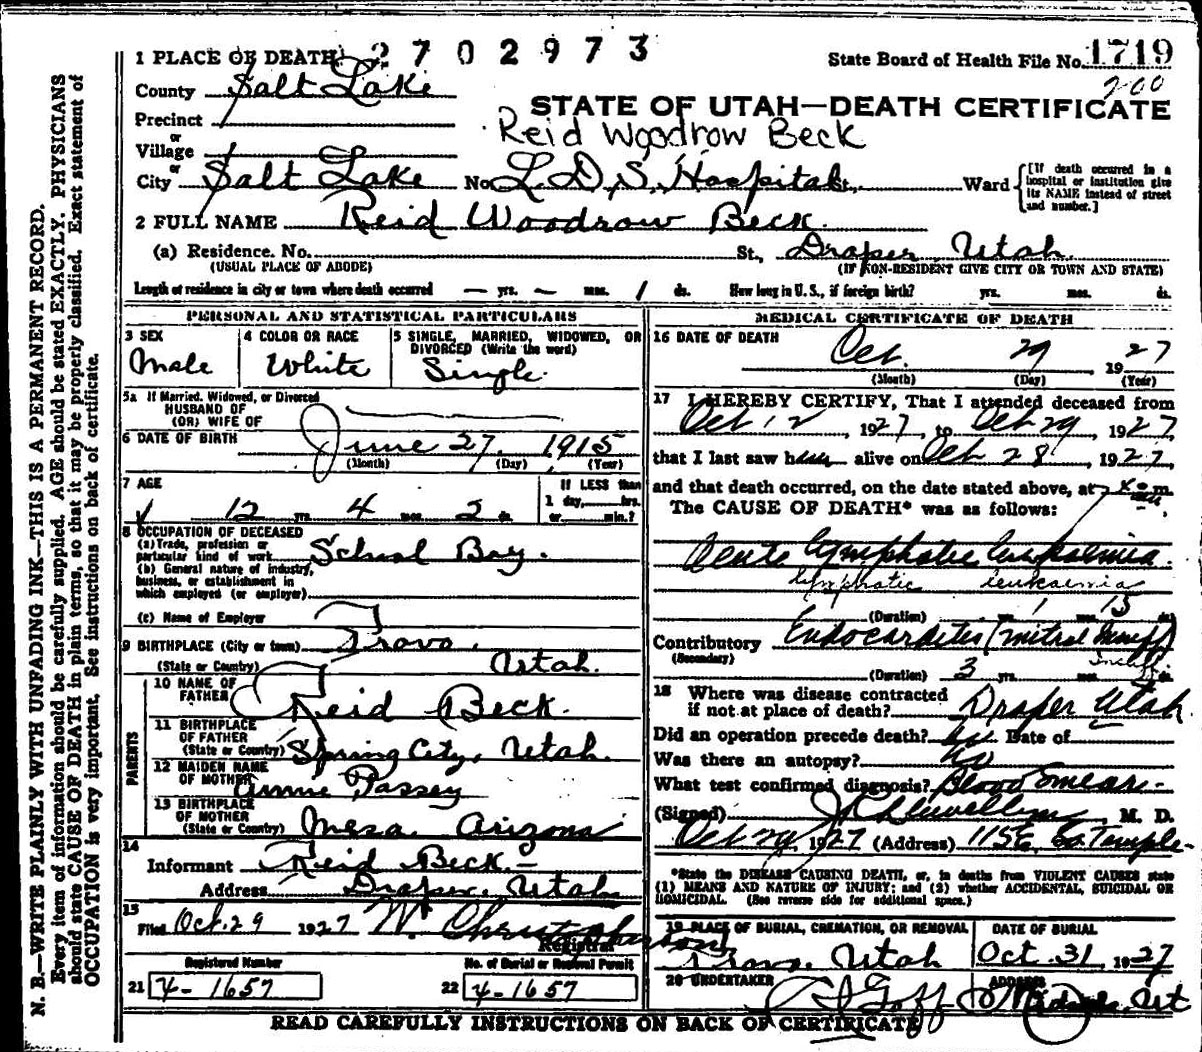 1 PLACE OF DEATH 2702973
State Board of Health File No. 1719
200
County Salt Lake
STATE OF UTAH—DEATH CERTIFICATE
Precinct
Reid Woodrow Beck
or
Village
or
City Salt Lake No. L.D.S. Hospital St., Ward {[If death occurred in a hospital or institution give its NAME instead of street and number.]
2 FULL NAME Reid Woodrow Beck
(a) Residence. No. St., Draper, Utah.
(USUAL PLACE OF ABODE) (IF NON-RESIDENT GIVE CITY OR TOWN AND STATE)
Length of residence in city or town where death occurred — yrs. — mos. 1 ds. How long in U. S., if foreign birth? yrs. mos. ds.
PERSONAL AND STATISTICAL PARTICULARS
3 SEX
Male
4 COLOR OR RACE
White
5 SINGLE, MARRIED, WIDOWED, OR DIVORCED (Write the word)
Single.
5a If Married, Widowed, or Divorced
HUSBAND OF
(OR) WIFE OF
6 DATE OF BIRTH June 27, 1915
(Month) (Day) (Year)
7 AGE
12 yrs. 4 mos. 2 ds.
IF LESS than
1 day, hrs.
or min.?
8 OCCUPATION OF DECEASED
(a) Trade, profession or
particular kind of work School Boy.
(b) General nature of industry,
business, or establishment in
which employed (or employer)
(c) Name of Employer
9 BIRTHPLACE (City or town) Provo,
(State or Country) Utah.
PARENTS
10 NAME OF
FATHER Reid Beck.
11 BIRTHPLACE
OF FATHER
(State or Country) Spring City, Utah.
12 MAIDEN NAME
OF MOTHER Annie Passey
13 BIRTHPLACE
OF MOTHER
(State or Country) Mesa Arizona
14
Informant Reid Beck.—
Address Draper, Utah
15
Filed Oct. 29 1927 W. Christopherson
Registrar
Registered Number
21 4-1657
No. of Burial or Removal Permit
22 4-1657
MEDICAL CERTIFICATE OF DEATH
16 DATE OF DEATH
Oct. 29 1927
(Month) (Day) (Year)
17 I HEREBY CERTIFY, That I attended deceased from
Oct 12, 1927, to Oct 29, 1927,
that I last saw him alive on Oct 28, 1927,
and that death occurred, on the date stated above, at 7 m.
The CAUSE OF DEATH* was as follows:
Acute lymphatic leukaemia.
lymphatic leukaemia
1 15
(Duration) yrs. mos. ds.
Contributory Endocarditis (mitral
(Secondary)
(Duration) 3 yrs. mos. ds.
18 Where was disease contracted
if not at place of death? Draper Utah.
Did an operation precede death? no Date of
Was there an autopsy? no
What test confirmed diagnosis? Blood Smear-
(Signed) Llewellyn, M. D.
Oct 29, 1927 (Address) 115 E. So. Temple-
*State the DISEASE CAUSING DEATH, or, in deaths from VIOLENT CAUSES state
(1) MEANS AND NATURE OF INJURY; and (2) whether ACCIDENTAL, SUICIDAL OR
HOMICIDAL. (See reverse side for additional space.)
19 PLACE OF BURIAL, CREMATION, OR REMOVAL
Provo, Utah
DATE OF BURIAL
Oct. 31, 1927
20 UNDERTAKER
Goff
ADDRESS
Midvale, Ut
READ CAREFULLY INSTRUCTIONS ON BACK OF CERTIFICATE
N. B.—WRITE PLAINLY WITH UNFADING INK—THIS IS A PERMANENT RECORD.
Every item of information should be carefully supplied. AGE should be stated EXACTLY. PHYSICIANS
should state CAUSE OF DEATH in plain terms, so that it may be properly classified. Exact statement of
OCCUPATION is very important. See instructions on back of certificate.